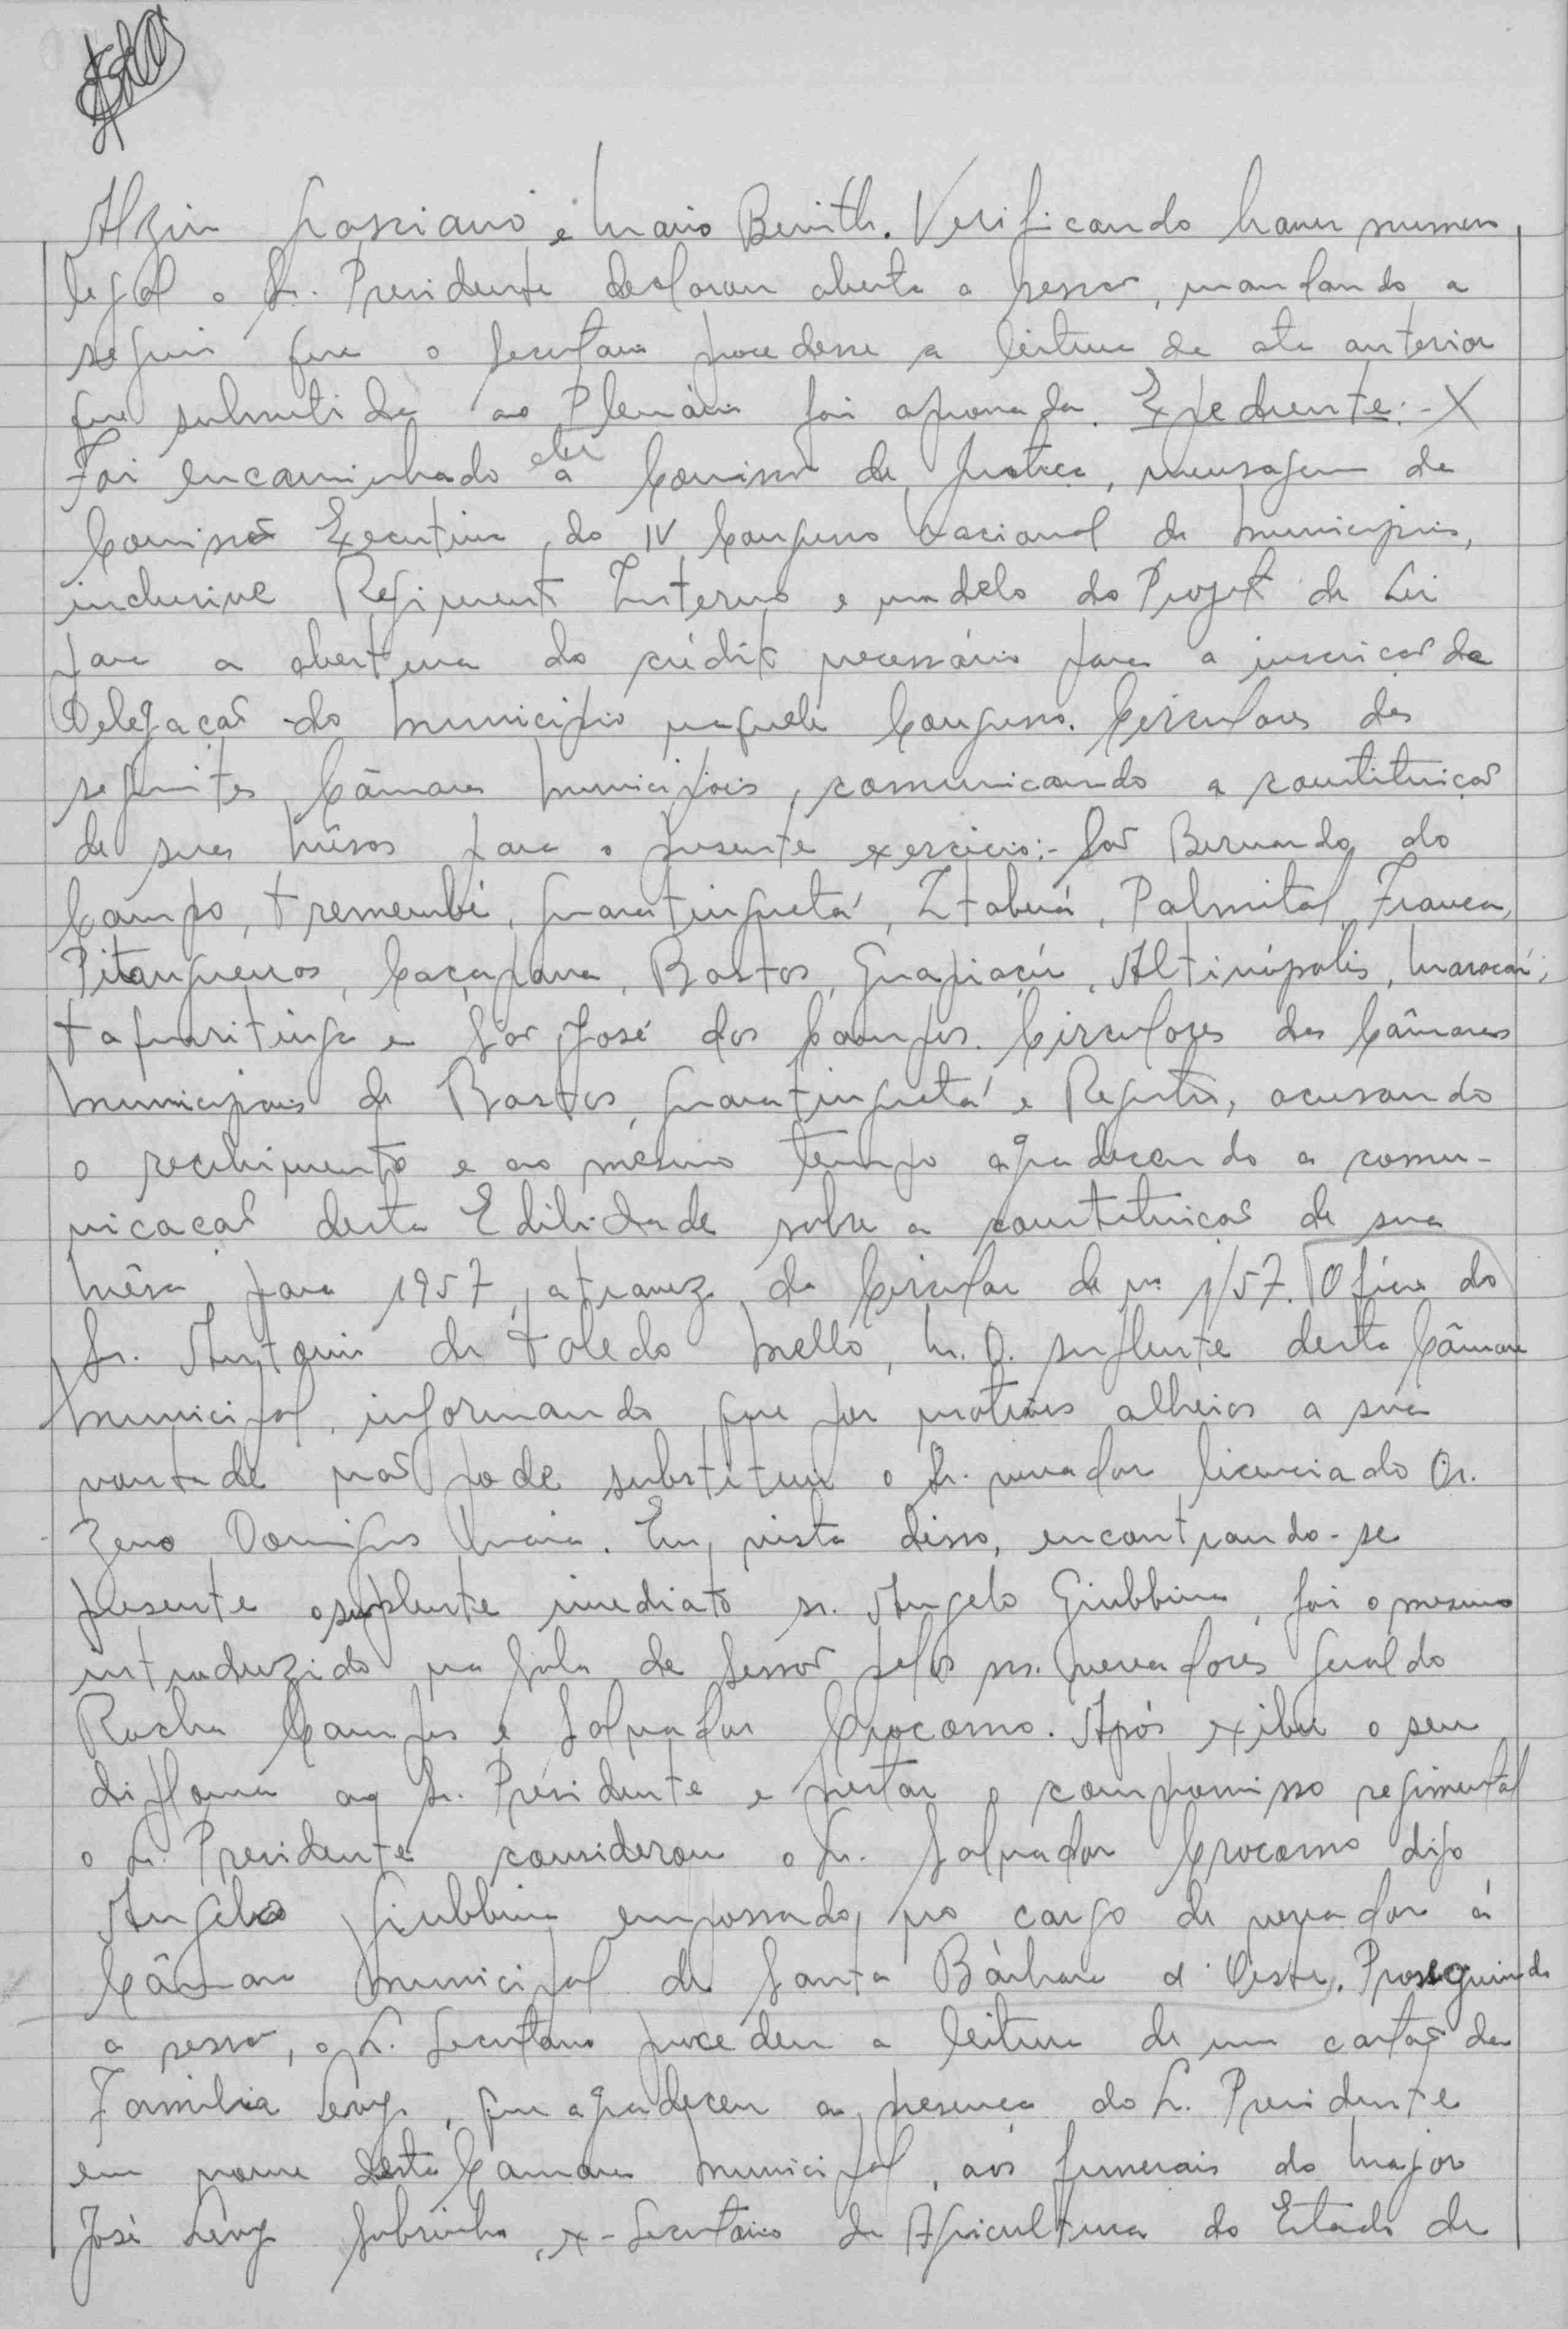 Alzir Grassiano e Mario Benith. Verificando haver numero
legal o Sr. Presidente declarou aberta a sessão, mandando a
seguir que o Secretario procedesse a leitura da ata anterior
que submetida ao Plenário foi aprovada. Expediente:- X
Foi encaminhado a Comissão de Justiça, mensagem da
Comissão Executiva do IV Congresso Nacional de Municipios,
inclusive Regimento Interno e modelo do Projeto de Lei
para a abertura do crédito necessário para a inscrição da
Delegação do Municipio naquele Congresso. Circulares das
seguintes Câmaras Municipais, comunicando a constituição
de suas Mêsas para o presente exercicio:- São Bernardo do
Campo, Tremembé, Guaratinguetá, Itaberá, Palmital, Franca,
Pitangueiras, Caçapava, Bastos, Guapiaçú, Altinópolis, Maracaí,
Taquaritinga e São José dos Campos. Circulares das Câmaras
Municipais de Bastos, Guaratinguetá e Registro, acusando
o recebimento e ao mesmo tempo agradecendo a comu-
nicação desta Edilidade sobre a constituição de sua
Mêsa para 1957, atravez da Circular de nº 1/57. Oficio do
Sr. Antonio de Toledo Mello, M. D. suplente desta Câmara
Municipal, informando que por motivos alheios a sua
vontade não pode substituir o Sr. vereador licenciado Dr.
Zeno Domingos Maia. Em vista disso, encontrando-se
presente o suplente imediato sr. Angelo Giubbina, foi o mesmo
introduzido na Sala de Sessão pelos srs. vereadores Geraldo
Rocha Campos e Salvador Crocomo. Após exibir o seu
diploma ao Sr. Presidente e prestar o compromisso regimental
o Sr. Presidente considerou o Sr. Salvador Crocomo digo
Angelo Giubbina empossado, no cargo de vereador á
Câmara Municipal de Santa Bárbara d'Oeste. Proseguindo
a sessão, o Sr. Secretario procedeu a leitura de um cartão da
Familia Levy, que agradeceu a presença do Sr. Presidente
em nome desta Camara Municipal, aos funerais do Major
José Levy Sobrinho, ex-Secretário da Agricultura do Estado de